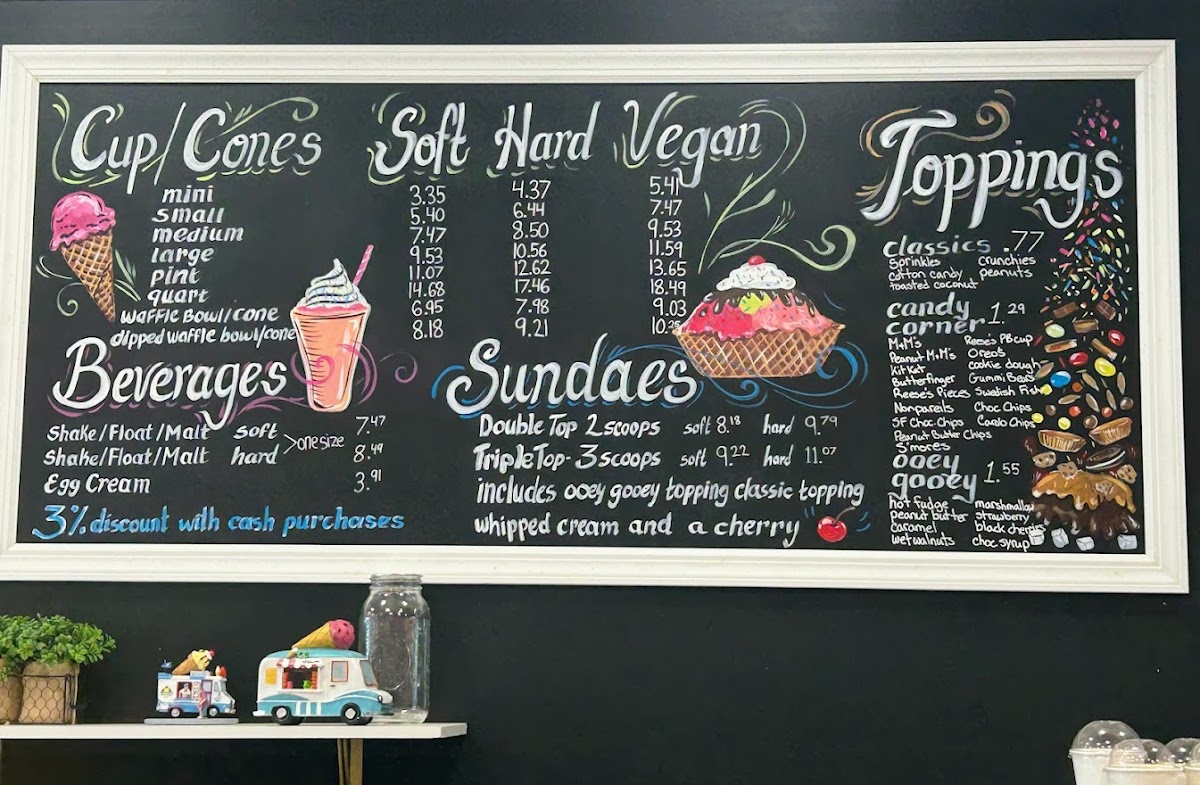 Cup/Cones Soft Hard Vegan
mini 3.35 4.37 5.41
small 5.40 6.44 7.47
medium 7.47 8.50 9.53
large 9.53 10.56 11.59
pint 11.07 12.62 13.65
quart 14.68 17.46 18.49
waffle Bowl/cone 6.95 7.98 9.03
dipped waffle bowl/cone 8.18 9.21 10.25
Beverages
Shake/Float/Malt soft >one size 7.47
Shake/Float/Malt hard 8.49
Egg Cream 3.91
3% discount with cash purchases
Sundaes
Double Top 2 scoops soft 8.18 hard 9.79
Triple Top- 3 scoops soft 9.22 hard 11.07
includes ooey gooey topping classic topping
whipped cream and a cherry
Toppings
classics .77
Sprinkles crunchies
cotton candy peanuts
toasted coconut
candy
corner 1.29
M&M's Reese's PB cup
Peanut M&M's Oreo's
KitKat cookie dough
Butterfinger Gummi Bears
Reese's Pieces Swedish Fish
Nonpareils Choc Chips
SF Choc Chips Carob Chips
Peanut Butter Chips
S'mores
ooey
gooey 1.55
hot fudge marshmallow
peanut butter strawberry
caramel black cherries
wet walnuts choc syrup